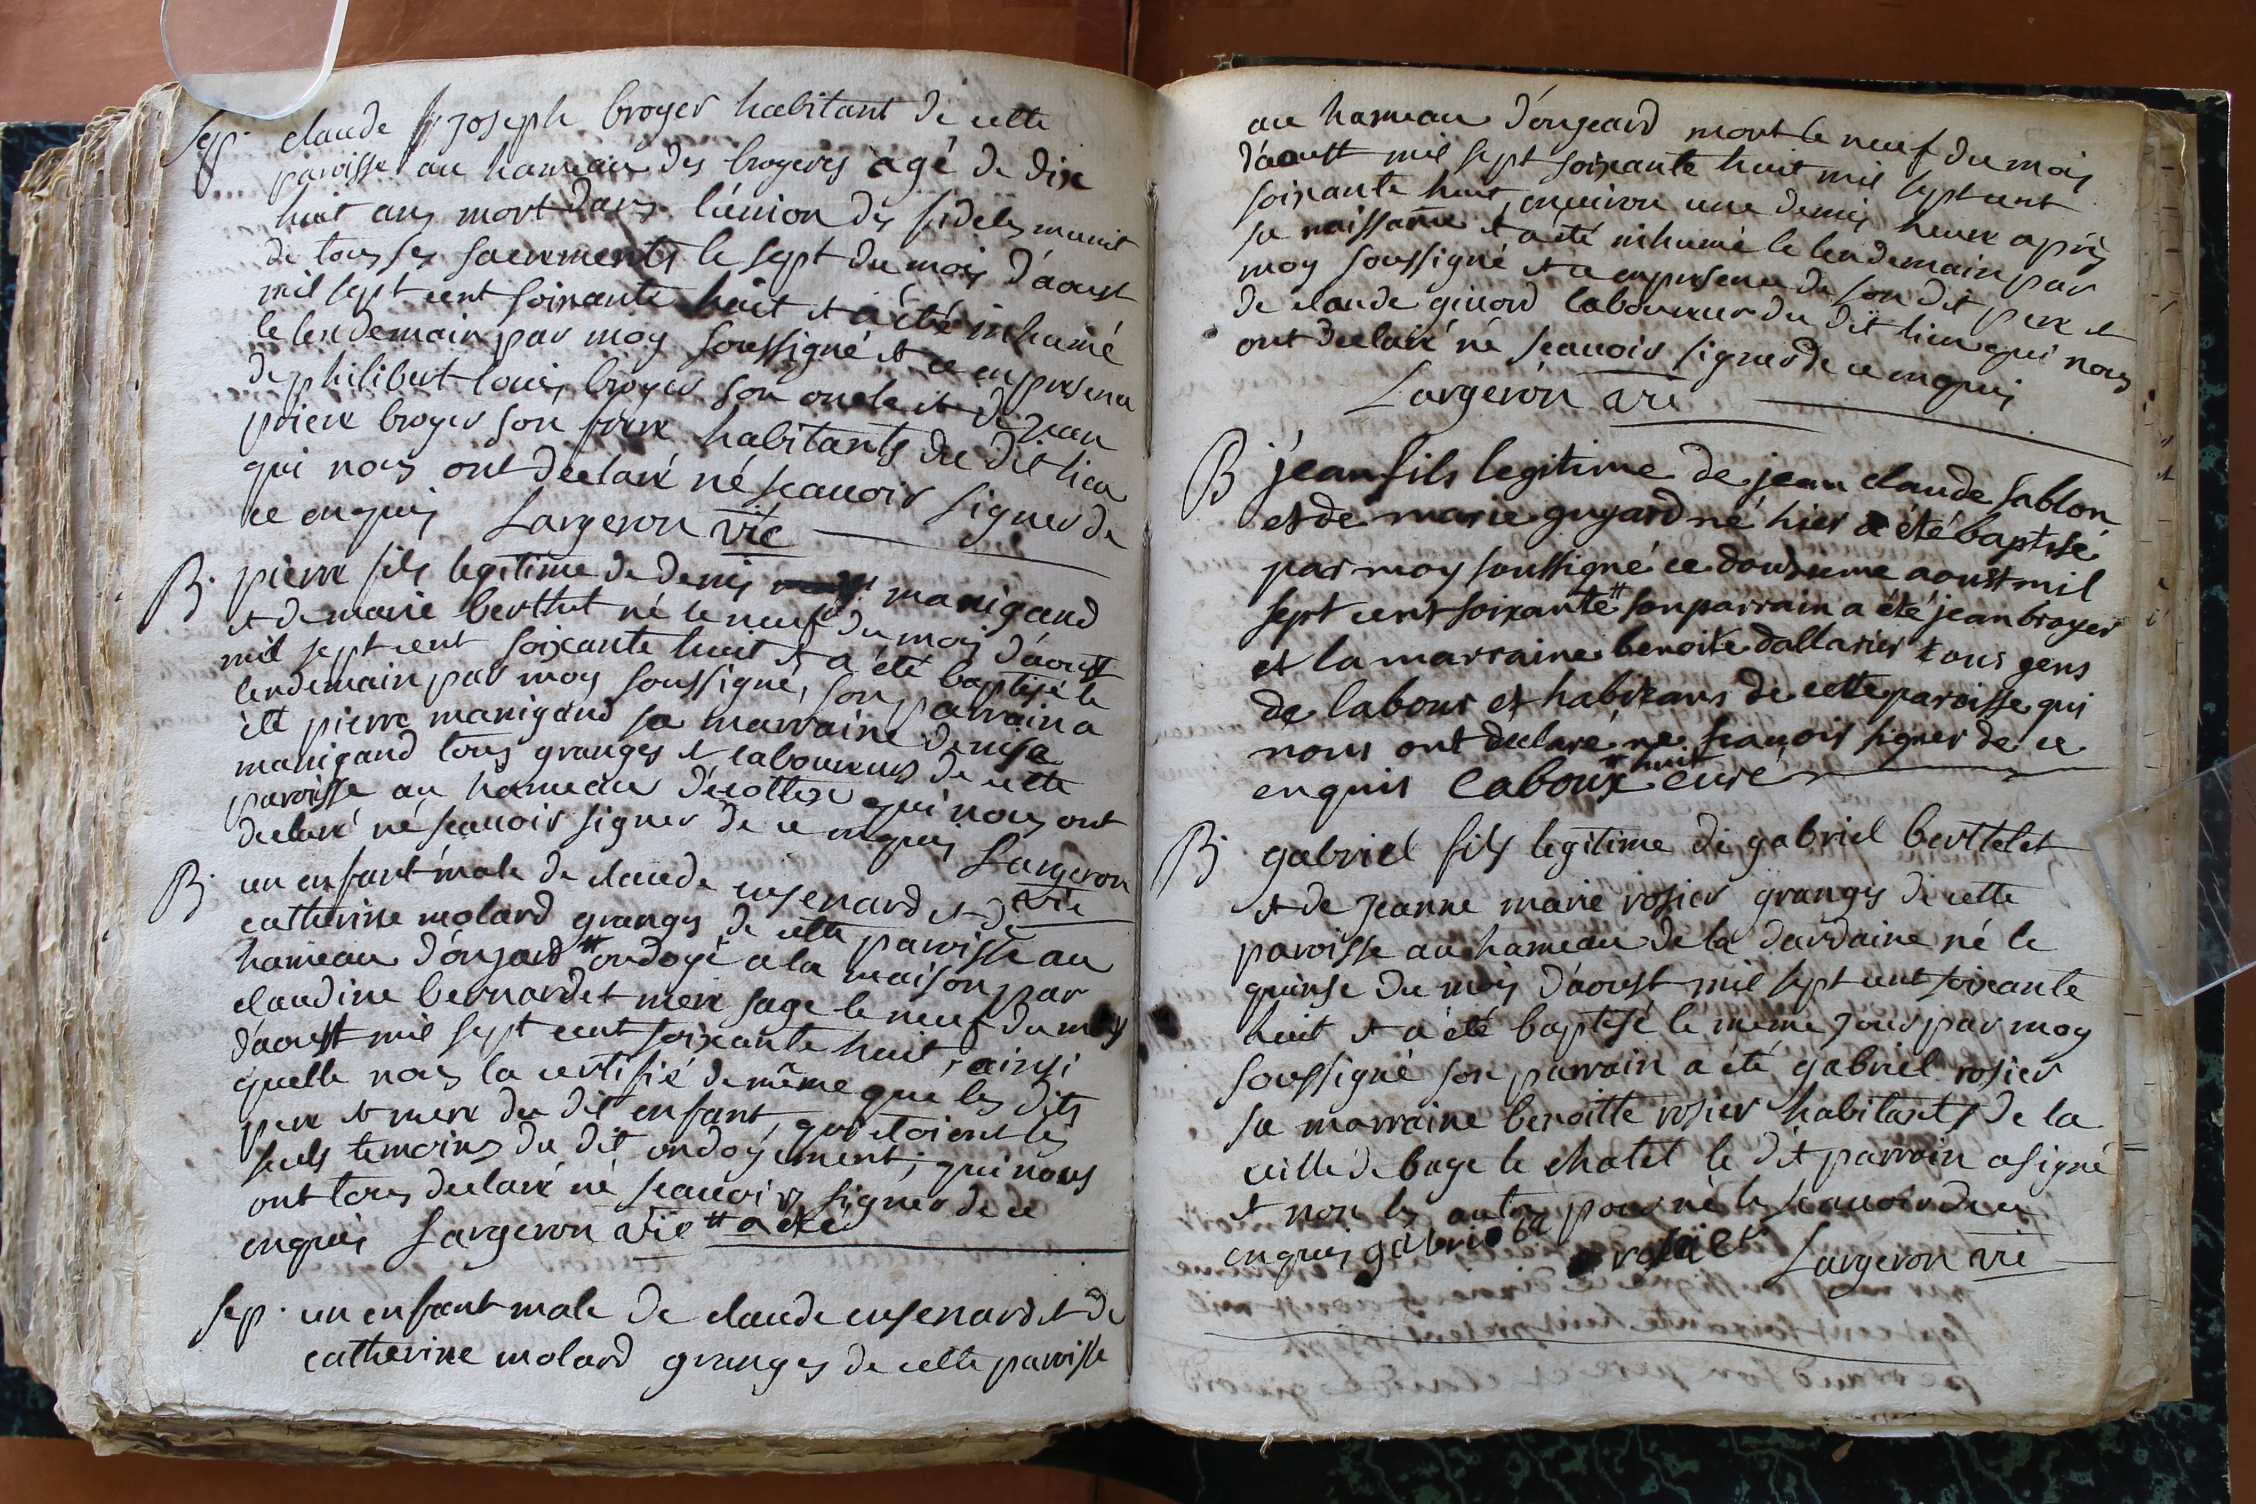 Sep. claude joseph broyer habitant de cette
paroisse au hameau des broyeres agé de dixe
huit ans mort dans l'ênion des fideles munit
de tous ses sacrements le sept du mois d'aoust
mil sept cent soixante huit et a été inhumé
le lendemain par moy soussigné et ce en presence
de philibert louis broyer son oncle et de jean
pierre broyer son frere habitants du dit lieu
qui nous ont declaré né scauoir signer de
ce enquis Largeron vic
B. pierre fils legitime de denis manigand
et de marie berthet né le neuf du mois d'aoust
mil sept cent soixante huit et a été baptisé le
lendemain par moy soussigné, son parrain a
été pierre manigand sa marraine denise
manigand tous grangés et laboureurs de cette
paroisse au hameau qui nous ont
declaré né scauoir signer de ce enquis Largeron
vic
B. un enfant male de claude ensenard et de
catherine molard grangés de cette paroisse au
hameau d'onjard # ondoyé a la maison par
claudine bernardet mere sage le neuf du mois
d'aoust mil sept cent soixante huit, ainsi
quelle nous la certifié de même que les dits
pere et mere du dit enfant, qui etoient les
seuls temoins du dit ondoyement, qui nous
ont tous declaré né scauoir signer de ce
enquis Largeron vic # a été
Sep. un enfant male de claude ensenard et de
catherine molard grangés de cette paroisse
au hameau d'ongeard mort le neuf du mois
d'aoust mil sept soixante huit mil sept cent
soixante huit, enuiron une demis heure après
sa naissance et a été inhumé le lendemain par
moy soussigné et ce en presence de son dit pere et
de claude giuord laboureur du dit lieu qui nous
ont declaré né scauoir signer de ce enquis
Largeron vic
B jean fils legitime de jean claude sablon
et de marie guyard né hier a été baptisé
par moy soussigné ce douzieme aoust mil
sept cent soixante # son parrain a été jean broyer
et la marraine benoite dallarier tous gens
de labour et habitans de cette paroisse qui
nous ont declaré ne scauoir signer de ce
enquis Laboux # huit curé
B. gabriel fils legitime de gabriel berthelet
et de jeanne marie rosier grangés de cette
paroisse au hameau de la dardaine né le
quinse du mois d'aoust mil sept cent soixante
huit et a été baptisé le même jour par moy
soussigné son parrain a été gabriel rosier
sa marraine benoitte rosier habitants de la
uille de bage le chatel le dit parrain a signé
et non les autres pour né le scauoir de ce
enquis gabriel rosier Largeron vic